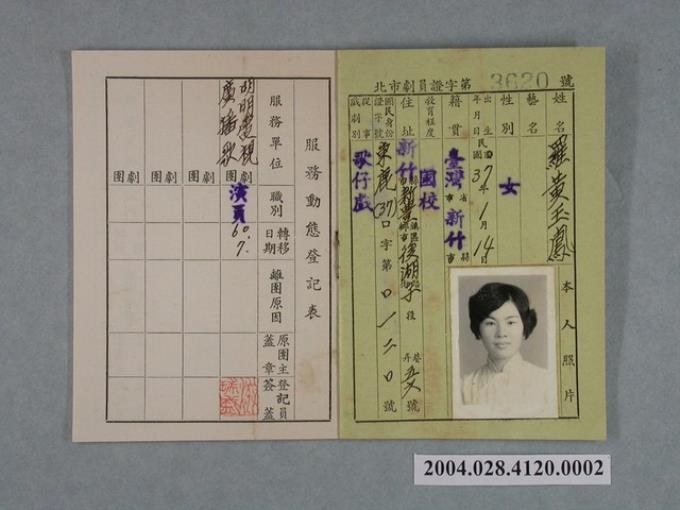 北市劇員證字第 3620 號
姓名 羅黃玉鳳
藝名
性別 女
出生年月日 民國37年1月14日
籍貫 臺灣省市新竹縣市
教育程度 國校
住址 新竹
國民身份證字號 (37)口字第0一二0號
從事戲劇別 歌仔戲
本人照片
服務動態登記表
服務單位
職別
轉移日期
離團原因
原團主蓋章
登記員簽蓋
劇團
演員
60.7.
劇團
劇團
劇團
2004.028.4120.0002